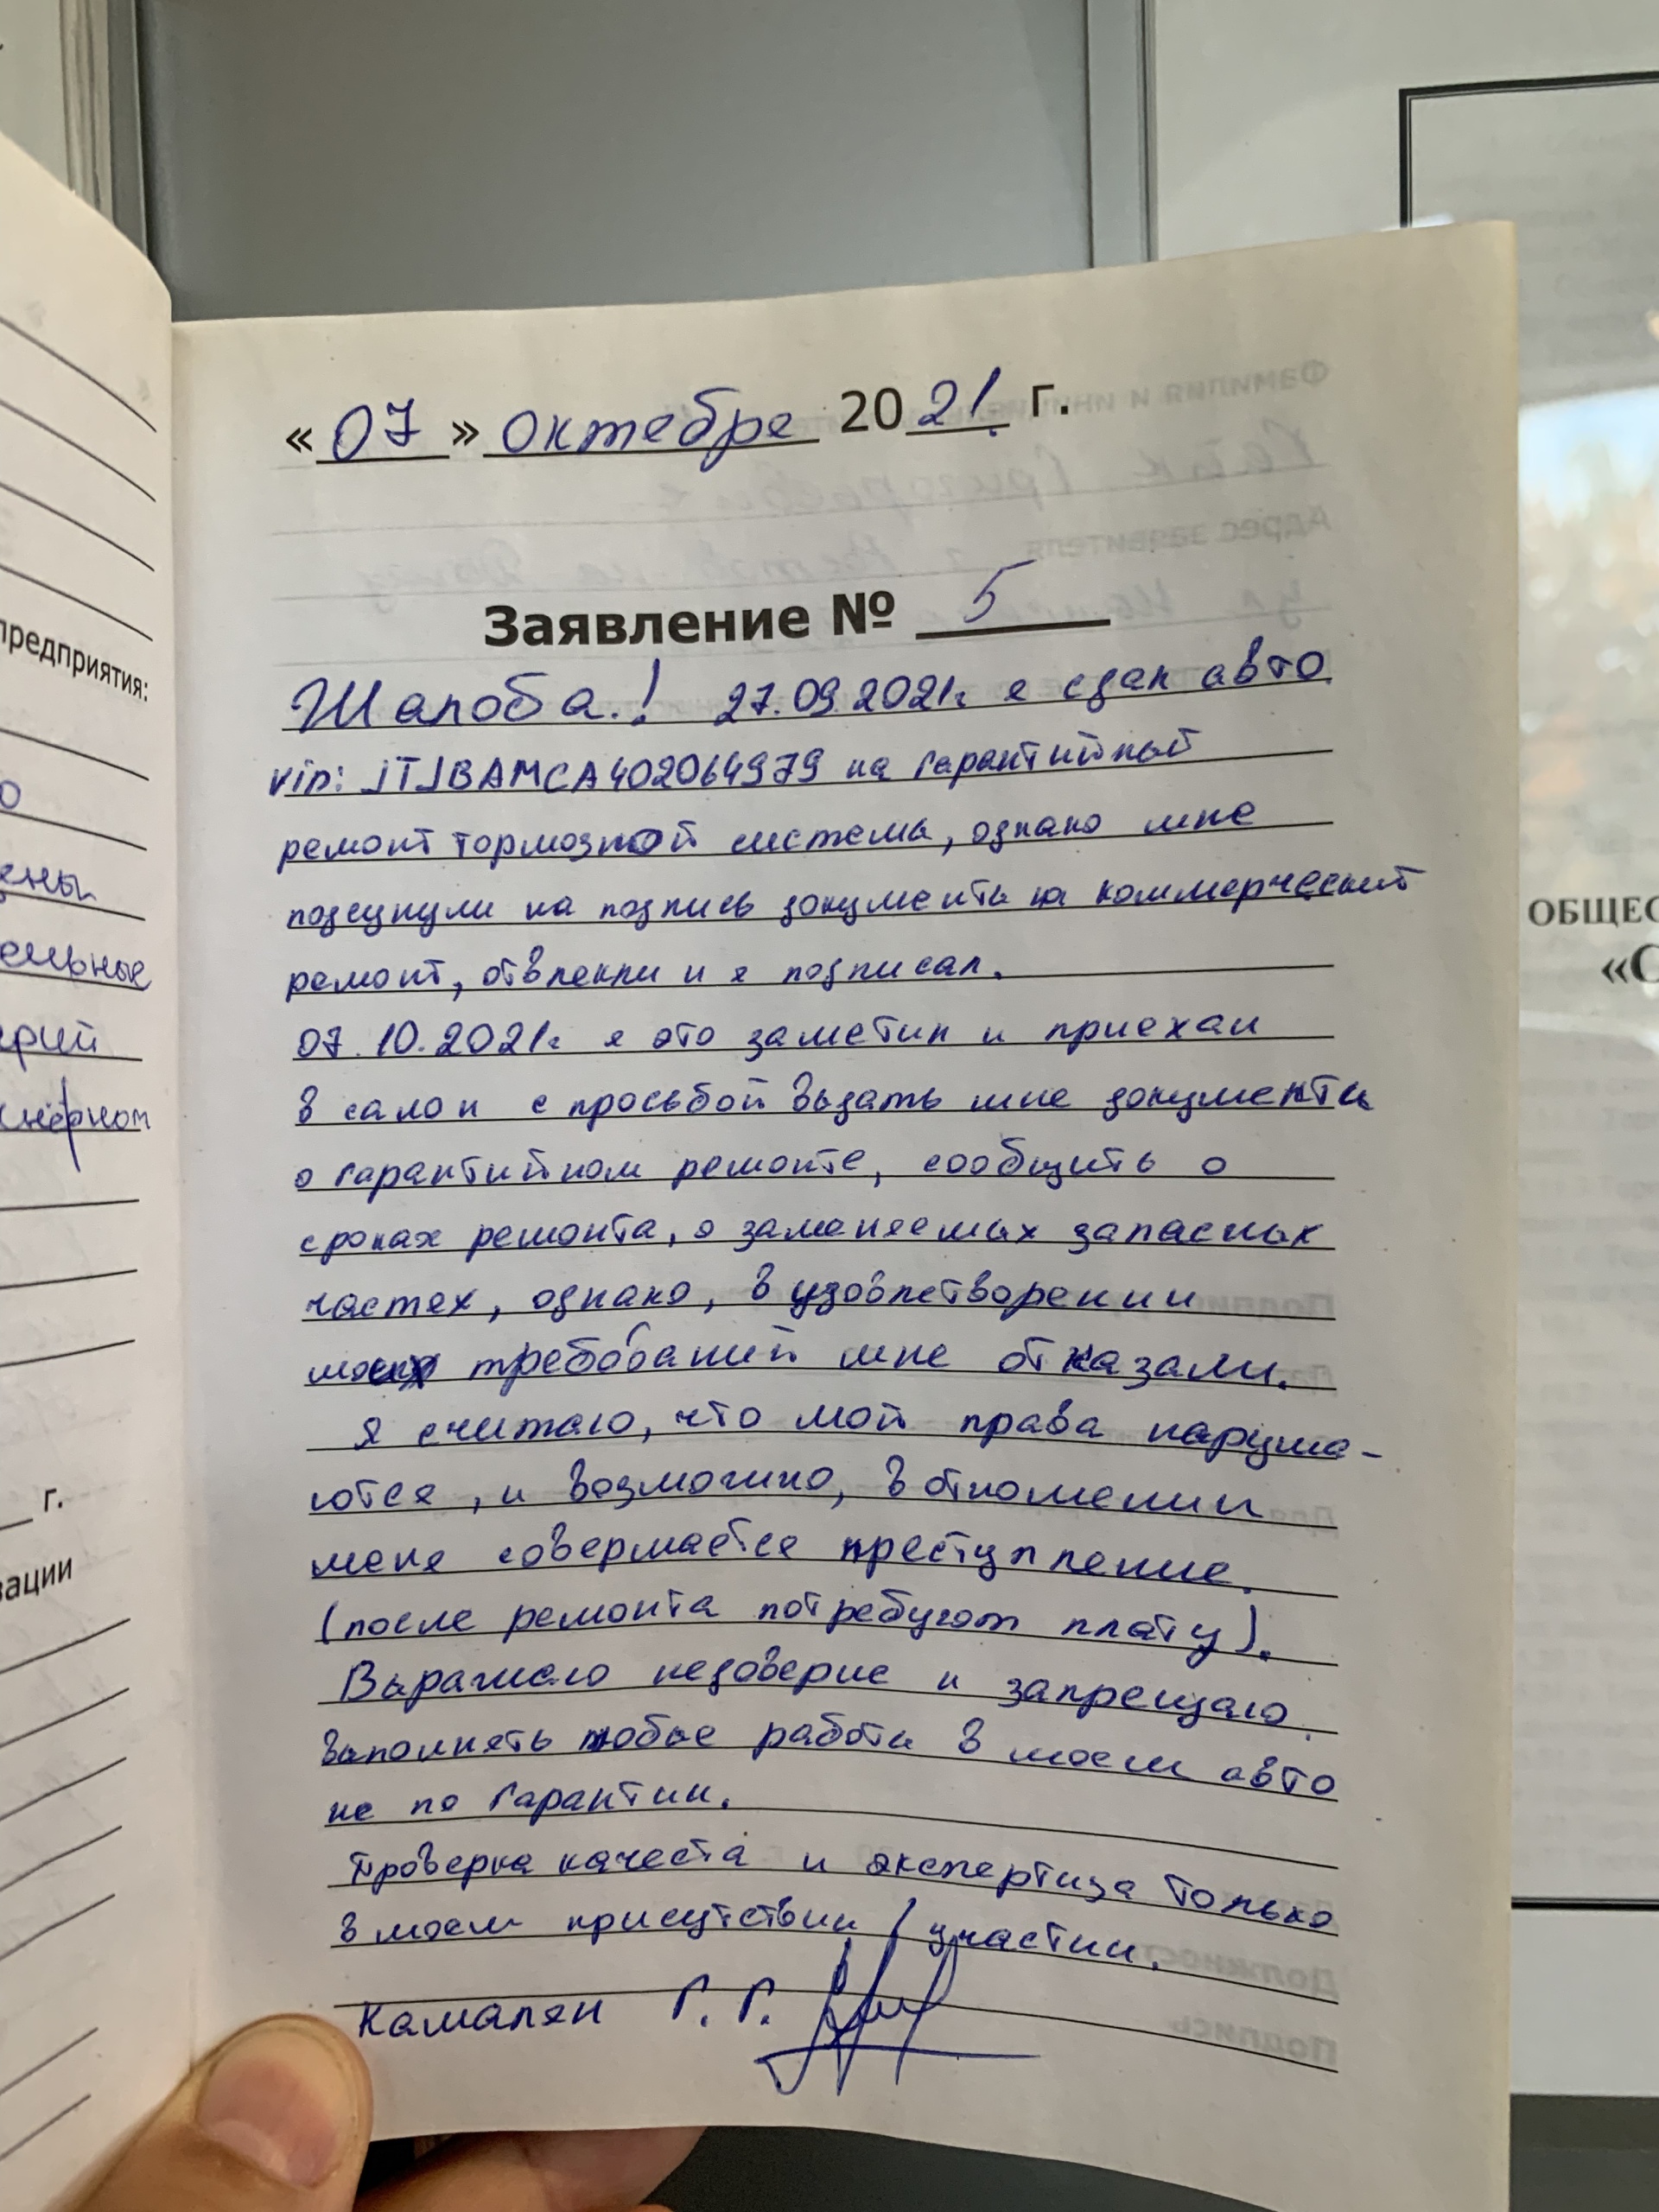 предприятия:
ены
ельные
ерий
г.
зации
«07» октебре 2021. г.
Заявление № 5
Жалоба.! 27.09.2021г. я сдал авто.
vin: JTJBAMCA402064979 на гарантийный
ремонт тормозной система, однако мне
подсунули на подпись документы на коммерческий
ремонт, отвлекли и я подписал.
07.10.2021г. я это заметил и приехал
в салон с просьбой выдать мне документы
о гарантийном ремонте, сообщить о
сроках ремонта, о заменяемых запасных
частях, однако, в удовлетворении
моих требований мне отказали.
Я считаю, что мои права наруша-
ются, и возможно, в отношении
меня совершается преступление.
(после ремонта потребуют плату).
Выражаю недоверие и запрещаю
выполнять любые работы в моем авто
не по гарантии.
Проверка качеста и экспертиза только
в моем присутствии / участии.
Камалян Г. Г.
ОБЩЕС
«С